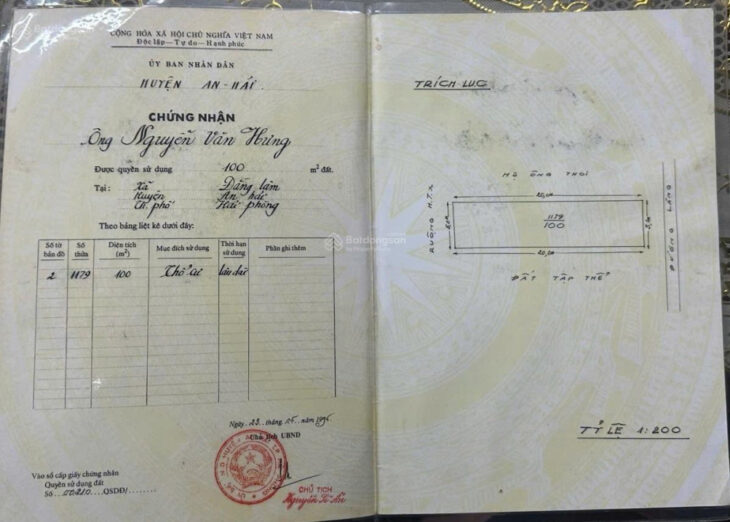 CỘNG HÒA XÃ HỘI CHỦ NGHĨA VIỆT NAM
Độc lập — Tự do — Hạnh phúc
ỦY BAN NHÂN DÂN
HUYỆN AN-HẢI
CHỨNG NHẬN
Ông Nguyễn Văn Hưng
Được quyền sử dụng 100 m² đất.
Tại: Xã Đằng lâm
Huyện An hải
Th.phố Hải phòng
Theo bảng liệt kê dưới đây:
Số tờ bản đồ Số thửa Diện tích (m²) Mục đích sử dụng Thời hạn sử dụng Phần ghi thêm
2 1179 100 Thổ cư lâu dài
Ngày 23 tháng năm
UBND
CHỦ TỊCH
Nguyễn
Vào sổ cấp giấy chứng nhận
Quyền sử dụng đất
Số QSDĐ/
TRÍCH LỤC
HỘ ÔNG THOI
20,0
RUỘNG H.T.X
1179
100
20,0
ĐẤT TẬP THỂ
ĐƯỜNG LÀNG
TỶ LỆ 1:200
Batdongsan